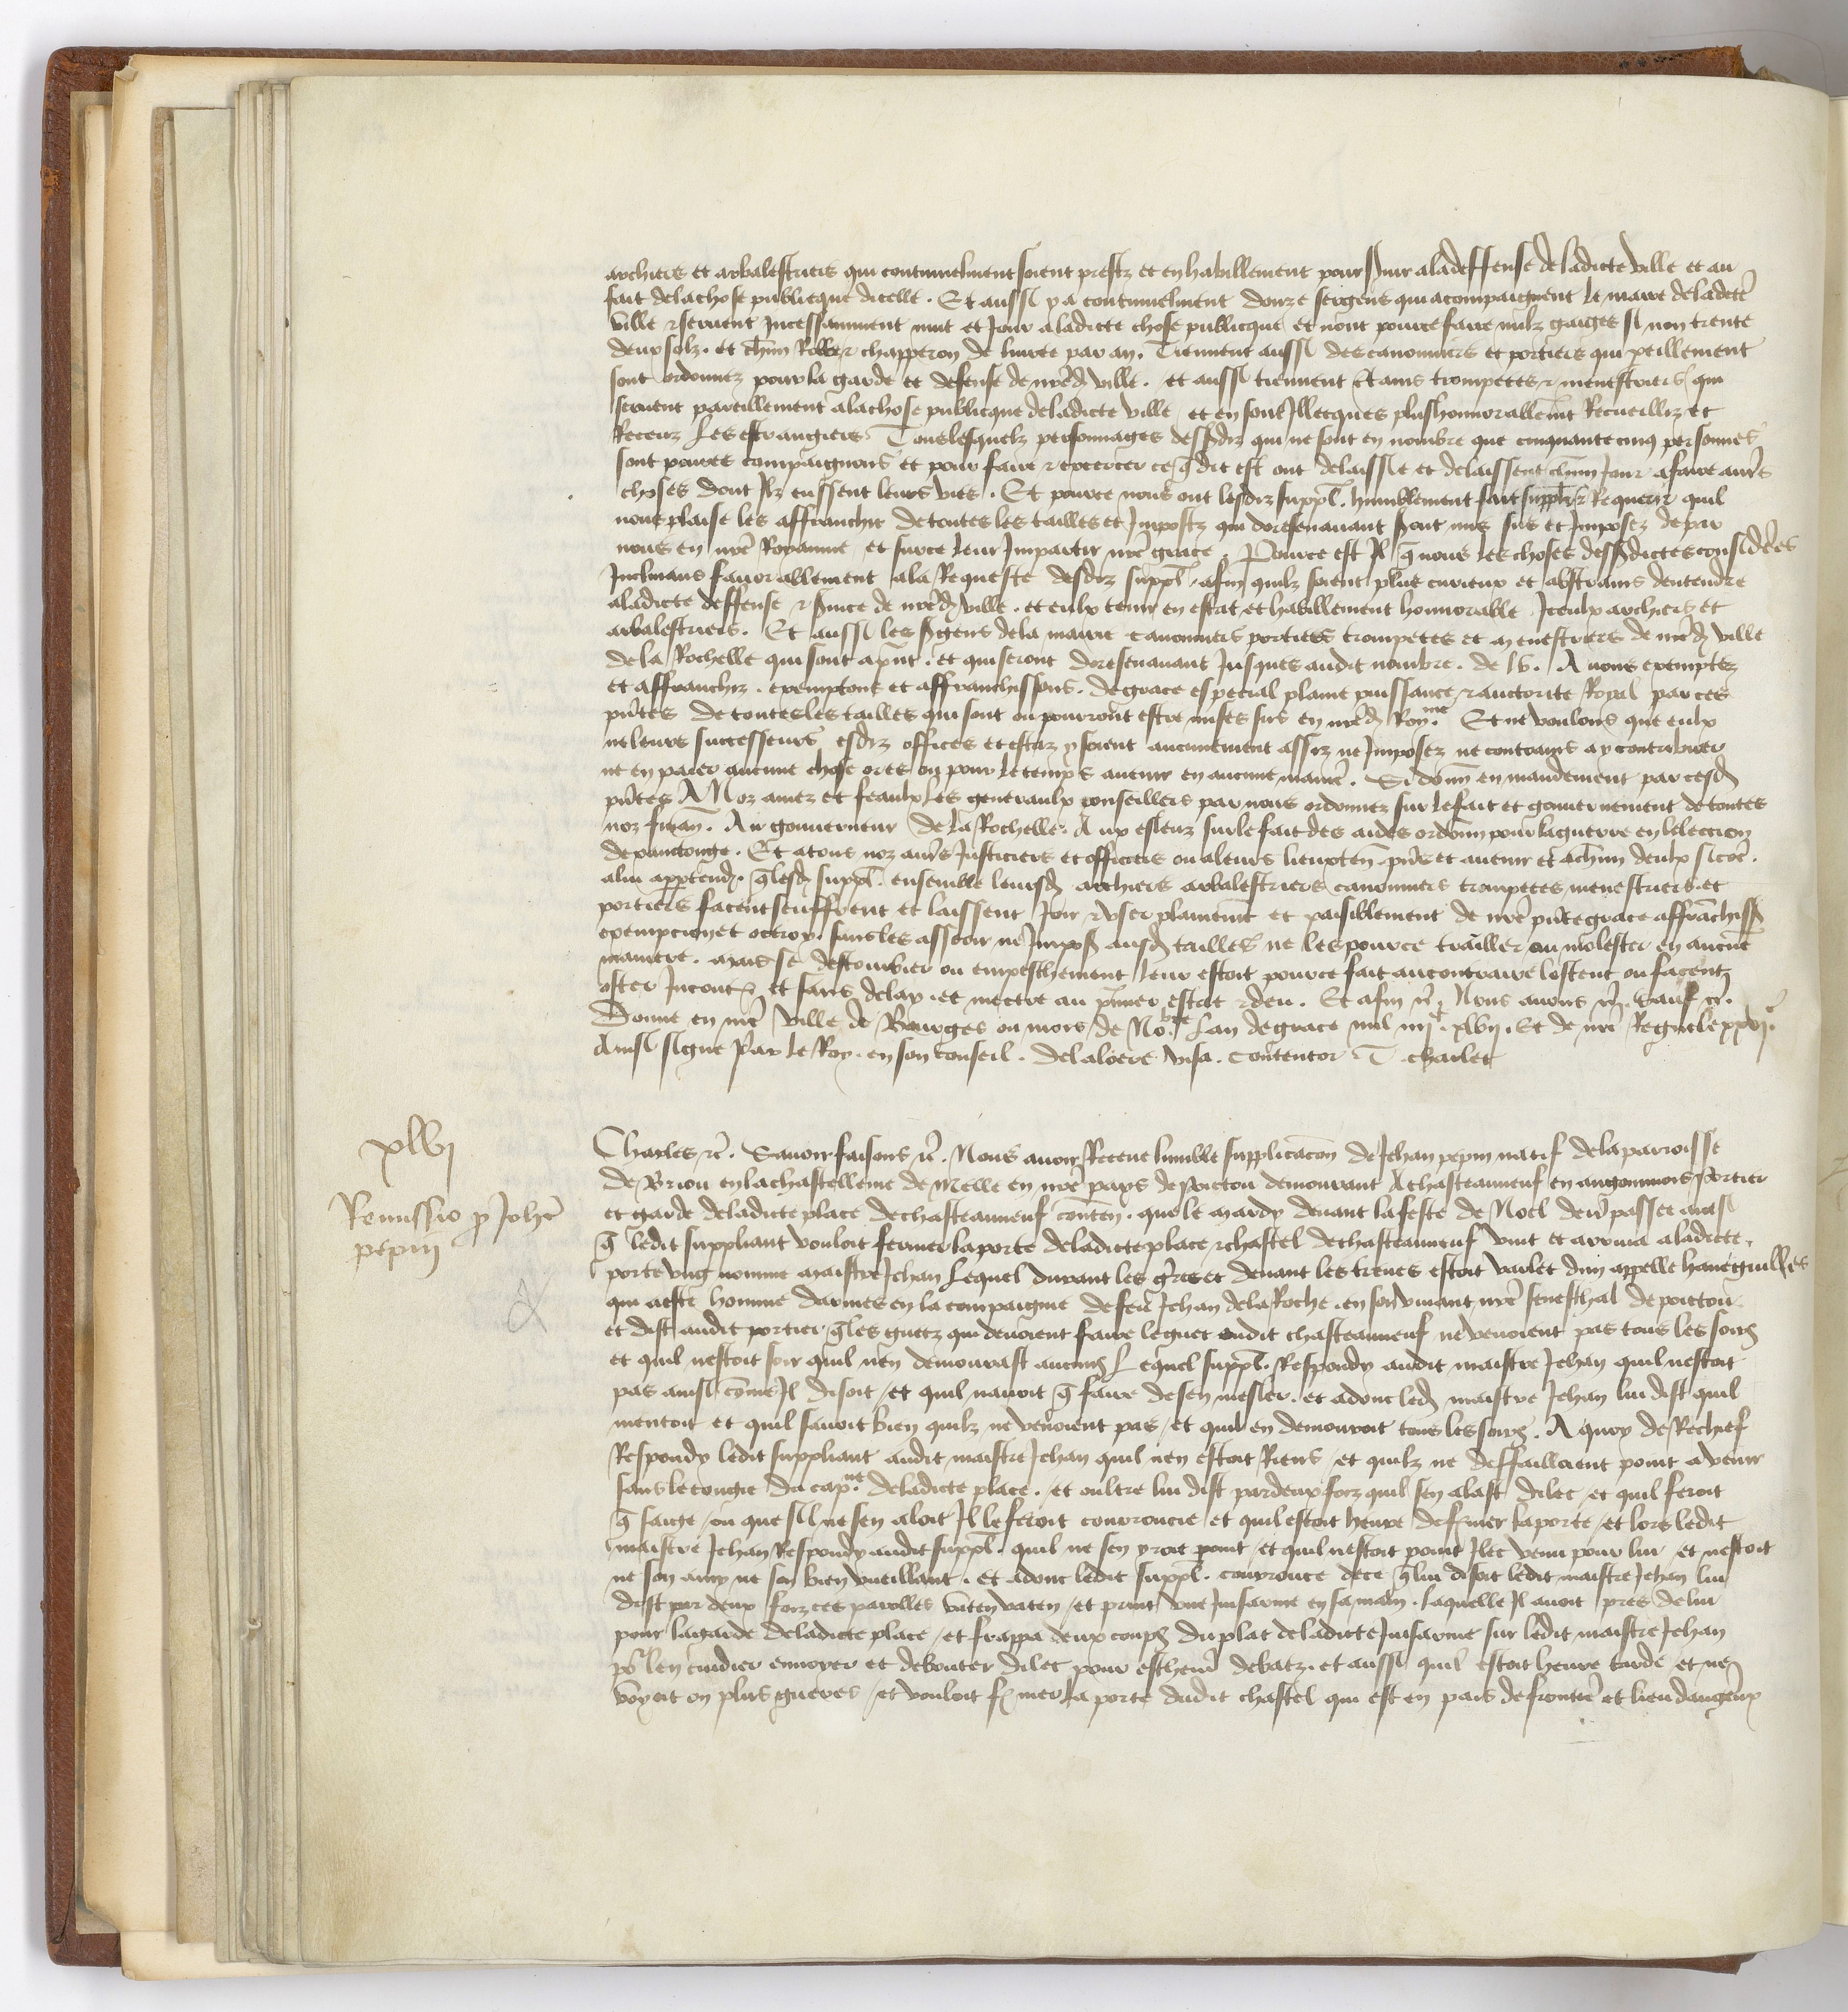 archiers et arbalestriers qui continuelment soient prestz et en habillement pour s'uir a la deffense de ladicte ville et au
fait de la chose publicque dicelle . Et aussi y a continuelment douze sergens qui acompaignent le maire de ladcte
ville & seruent Incessamment nuit et Jour a ladicte chose publicque et nont pource faire nulz gaiges si non trente
deux solz . et chun Robe & chapperon de liuree par an . Tiennent aussi des canonniers et portiers qui peillement
sont ordonnez pour la garde et defense de nred ville . et aussi tiennent ctains trompetes & menestriers qui
seruent pareillement a la chose publicque de ladicte ville / et en sont Illecques plus honnorablemt Recueilliz et
Receuz les estrangiers Tous lesquelz personnages dessdiz qui ne sont en nombre que cinquante cinq personnes
sont poures compaignons et pour faire & excercer ce q dit est ont delaisse et delaissent chun Jour a faire autres
choses dont Ilz eussent leurs vies . Et pource nous ont lesdiz suppl . humblement fait suppl & Requerir quil
nous plaise les affranchir de toutes les tailles et Impostz qui doresenauant sont mis sus et Imposez de par
nous en nre Royaume et surce leur Impartir nre grace . Pource est Il q nous les choses dessdictes considerees
Inclinans fauorablement a la Requeste desdiz suppl . afin quilz soient plus curieux et abstrains dentendre
a ladicte deffense & s'uice de nred ville . et eulx tenir en estat et habillement honnorable Iceulx archiers et
arbalestriers . Et aussi les s'gens de la mairie canonniers portiers trompetes et menestriers de nred ville
de la Rochelle qui sont apnt . et qui seront doresenauant Jusques audit nombre . de lv . Auons exemptez
et affranchiz . exemptons et affranchissons . de grace especial plaine puissance & auctorite Royal par ces
pntes de toutes les tailles qui sont ou pourront estre mises sus en nred Roy.me Et ne voulons que eulx
ne leurs successeurs esdiz offices et estaz y soient aucunement assiz ne Imposez ne contrains a y contribuer
ne en paier aucune chose ores ou pour le temps auenir en aucune maniere . Si donn en mandement par cesd
pntes A Noz amez et feaulx les generaulx conseillers par nous ordonnez sur le fait et gouuernement de toutes
noz finan . Au gouuerneur de la Rochelle . Aux esleuz sur le fait des aides ordonn pour la guerre en lelection
de xainctonge . Et a tous noz autres Justiciers et officiers ou a leurs lieuxten pns et auenir et achun deulx sicoe .
a lui apptendr . q lesd suppl . ensemble leursd archiers arbalestriers canonniers trompetes menestriers . et
portiers facent seuffrent et laissent Joir & vser plainemt et paisiblement de nre pnte grace affranchiss
exempcion et octroy . sans les asseoir ne Impos ausd tailles ne les pource trauiller ou molester en aucune
maniere . mais se destourbier ou empeschement leur estoit pource fait au contraire lostent ou facent
oster Incont et sans delay . et mectre au pmier estat & deu . Et afin &c Nous auons &c . sauf &c .
Donne en nre ville de Bourges ou mois de Nobre Lan de grace mil iiijc xlvij . Et de nre Regne le xxvje
Ainsi signe Par le Roy . en son conseil . delaloere visa . contentor T charles

xlvj
Remissio p Johe
pepin

Charles &c . Sauoir faisons &c . Nous auoir Receue lumble supplicacion de Jehan pepin natif de la parroisse
de Briou en la chastellenie de Melle en nre pays de poictou demourant A chasteauneuf en angoumois portier
et garde de ladicte place de chasteauneuf conten . que le mardy deuant la feste de Noel dern passee ainsi
q ledit suppliant vouloit fermer la porte de ladicte place & chastel de chasteauneuf vint et arriua a ladicte
porte vng nomme maistre Jehan lequel durant les gres et deuant les treues estoit varlet dun appelle haneguilles
qui a este homme darmes en la compaignie de feu Jehan de la Roche . en son viuant nre seneschal de poictou
et dist audit portier q les guetz qui deuoient faire le guet oudit chasteauneuf ne venoient pas tous les soirs
et quil nestoit soir quil nen demourast aucuns Lequel suppl . Respondy audit maistre Jehan quil nestoit
pas ainsi come Il disoit / et quil nauoit q faire de sen mesler . et adonc led maistre Jehan lui dist quil
mentoit et quil sauoit bien quilz ne venoient pas / et quil en demouroit tous les soirs . A quoy de Rechief
Respondy ledit suppliant audit maistre Jehan quil nen estoit Riens / et quilz ne deffailloient point a venir
sans le congie du cap.ne de ladicte place . / et oultre lui dist par deux foiz quil sen alast dilec / et quil feroit
q saige / ou que sil ne sen aloit Il le feroit courroucie et quil estoit heure de fermer la porte / et lors ledit
maistre Jehan Respondy audit suppl . quil ne sen yroit point / et quil nestoit point Ilec venu pour lui / et nestoit
ne son amy ne son bien vueillant . et adonc ledit suppl . courrouce de ce q lui disoit ledit maistre Jehan lui
dist par deux foiz ces parolles vaten vaten / et print vne Jusarme en sa main . laquelle Il auoit pres de lui
pour la garde de ladicte place / et frappa deux coups du plat de ladicte Jusarme sur ledit maistre Jehan
por len cuidier enuoyer et debouter dilec pour escheuer debatz . et aussi quil estoit heure tarde / et ne
veoyoit on plus gueres / et vouloit fermer la porte dudit chastel qui est en pais de frontiere et lieu dangereux